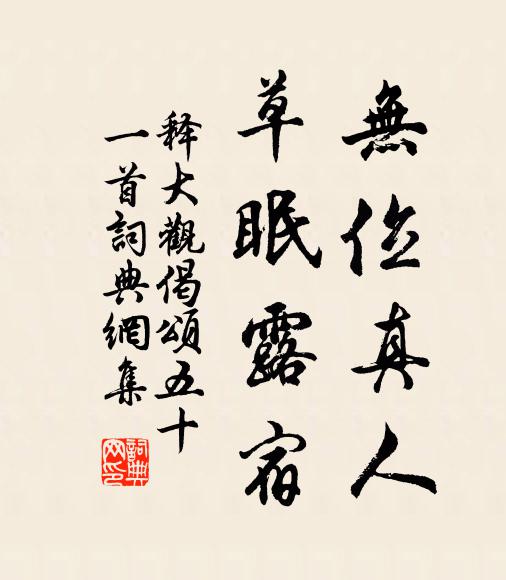 無位真人
草眠露宿
释大觀偈頌五十
一首詞典網集
詞典
网印